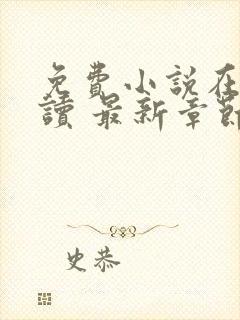 免費小說在
讀 最新章節
史恭